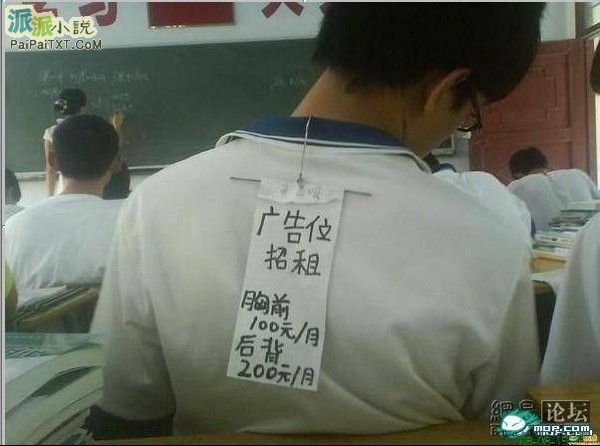 派派小說
PaiPaiTXT.Com
习
广告位
招租
胸前
100元/月
后背
200元/月
論坛
MOP.COM